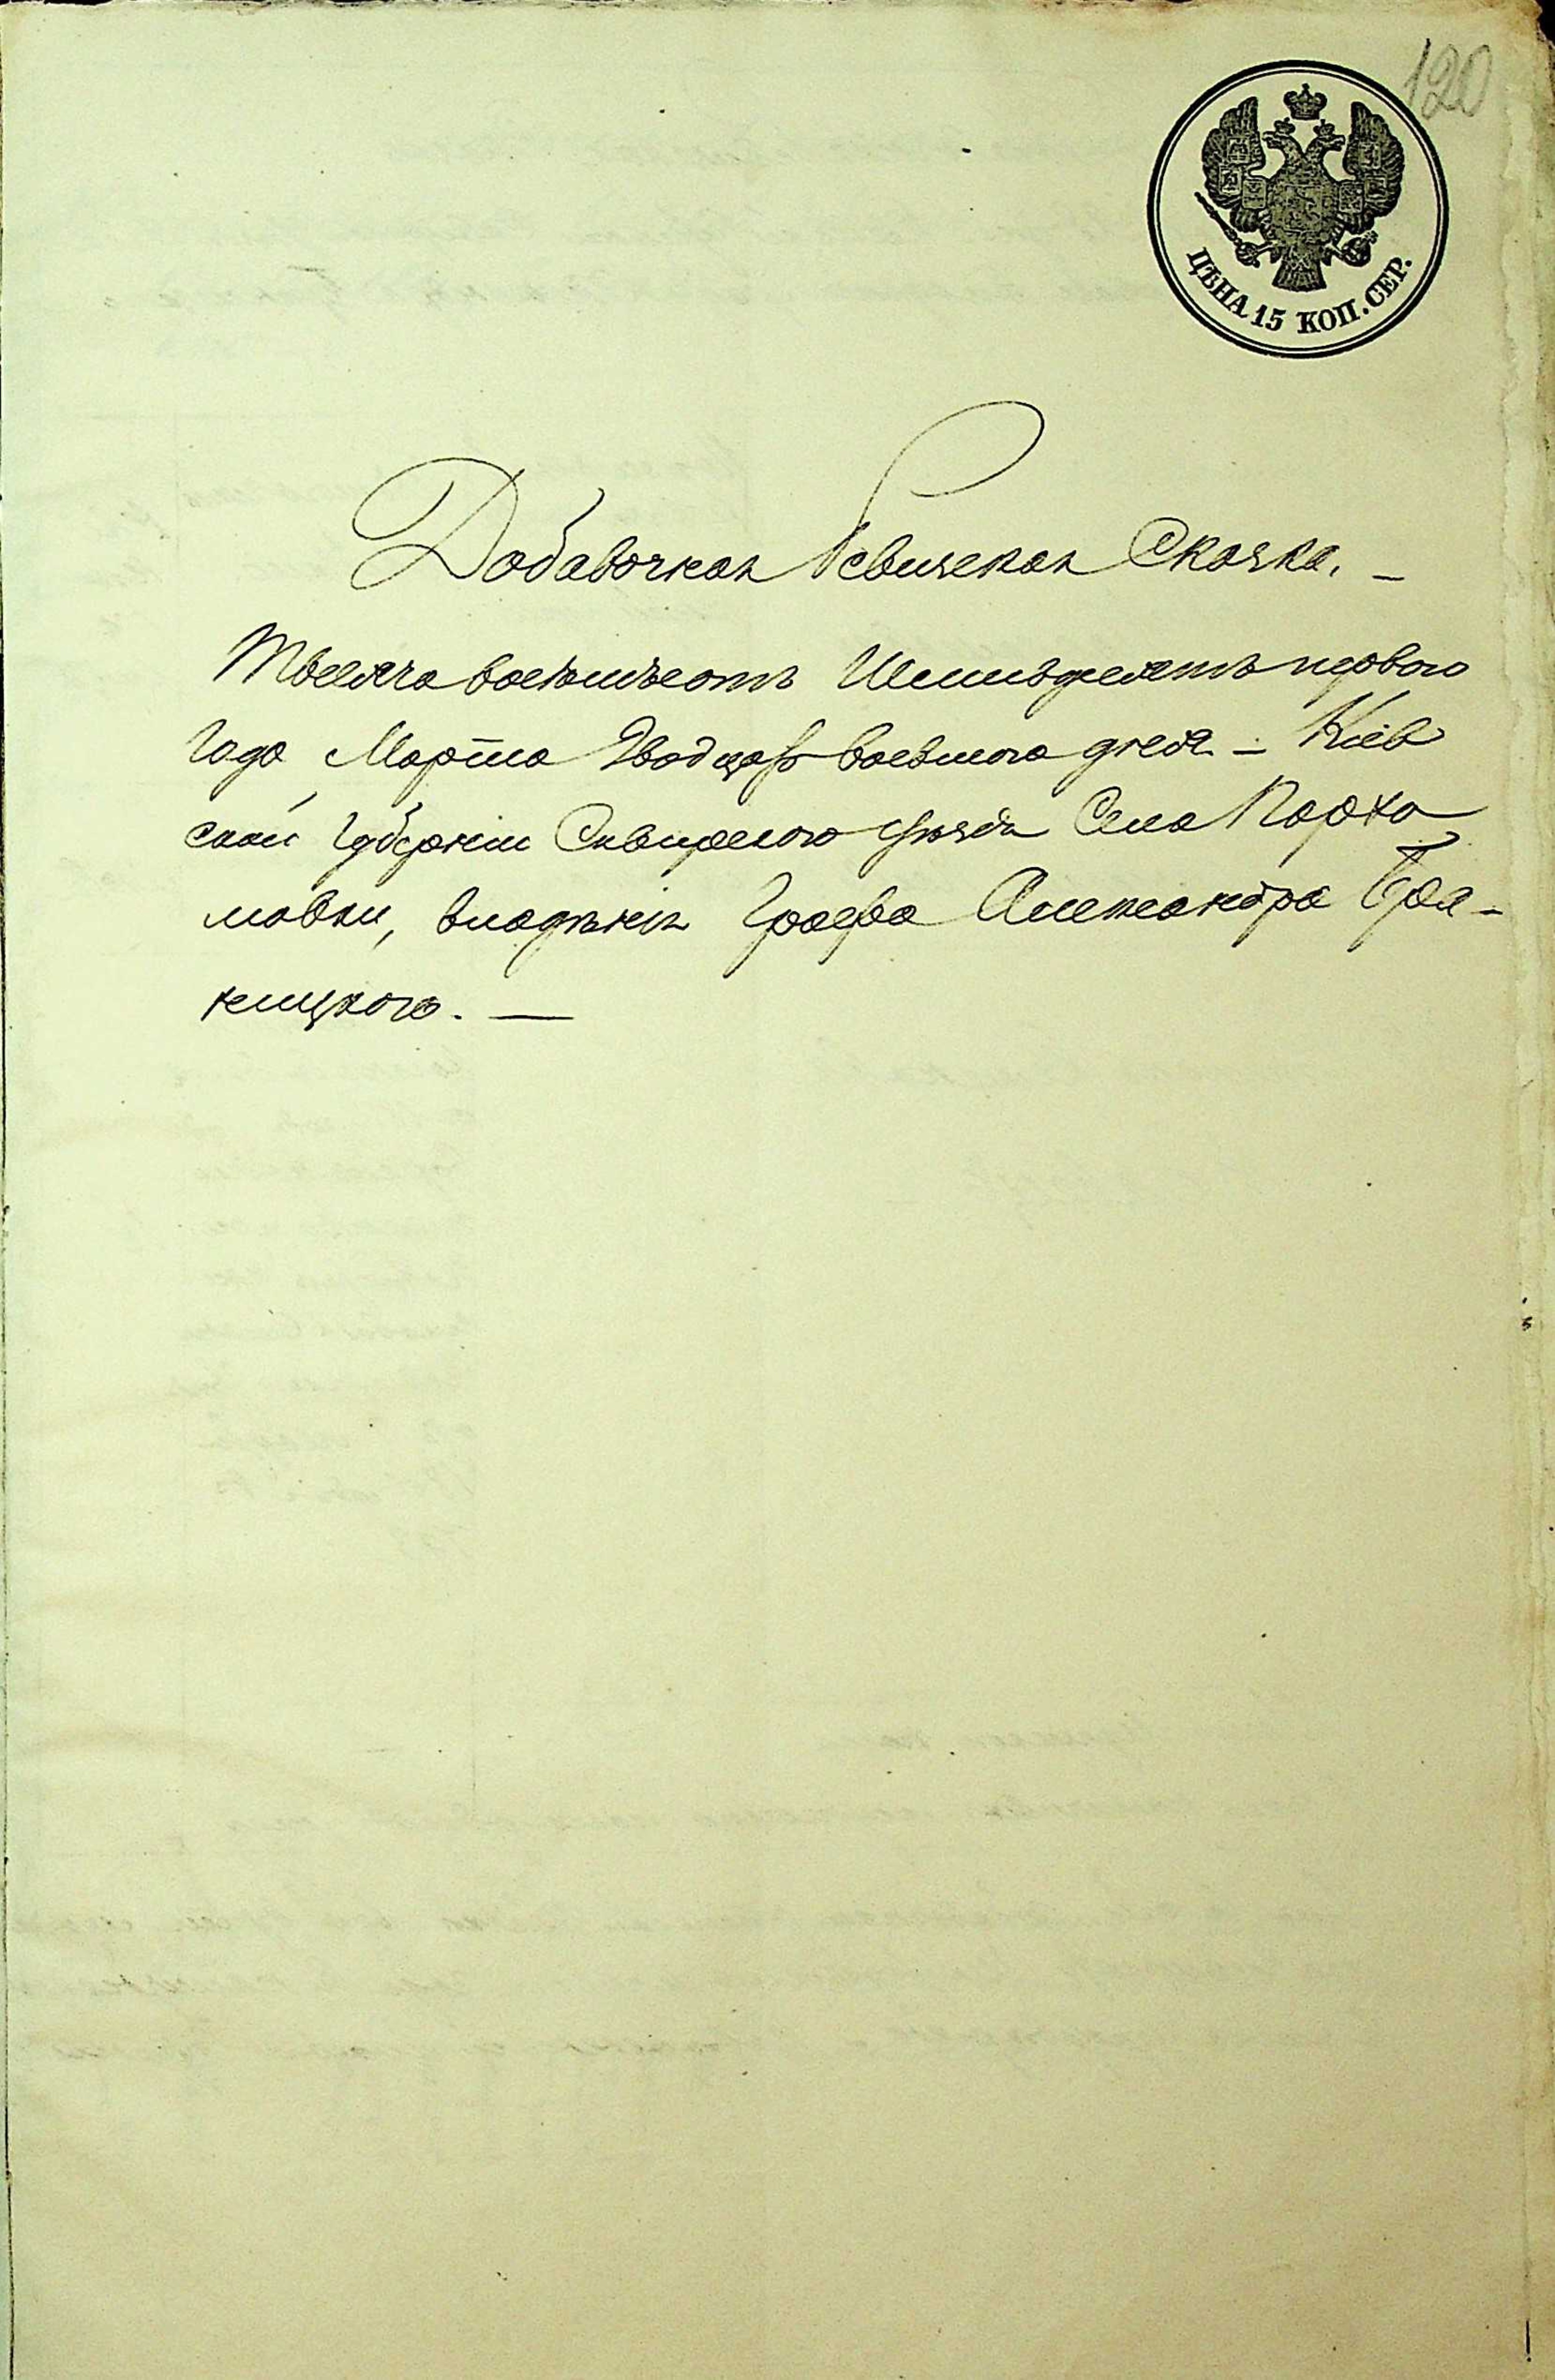 120
ЦѢНА 15 КОП. СЕР.
Добавочная Ревизская Сказка. —
Тысяча восемьсотъ Шестьдесятъ первого
Года Марта Двадцать восьмого дня — Кіев
ской Губерніи Сквирского уѣзда Села Пархо
мовки, владѣнія Графа Александра Бра-
ницкого. —